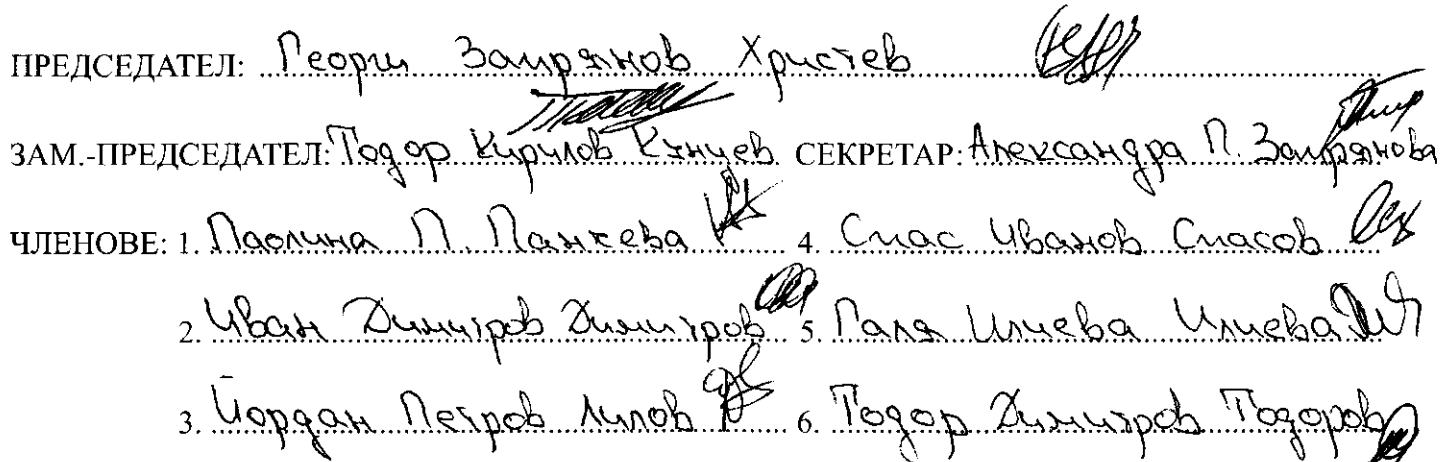 ПРЕДСЕДАТЕЛ: Георги Запрянов Христев
ЗАМ.-ПРЕДСЕДАТЕЛ: Тодор Кирилов Кънчев СЕКРЕТАР: Александра П. Запрянова
ЧЛЕНОВЕ: 1. Паолина П. Панчева 4. Спас Иванов Спасов
2. Иван Димитров Димитров 5. Галя Илиева Илиева
3. Йордан Петров Лилов 6. Тодор Димитров Тодоров